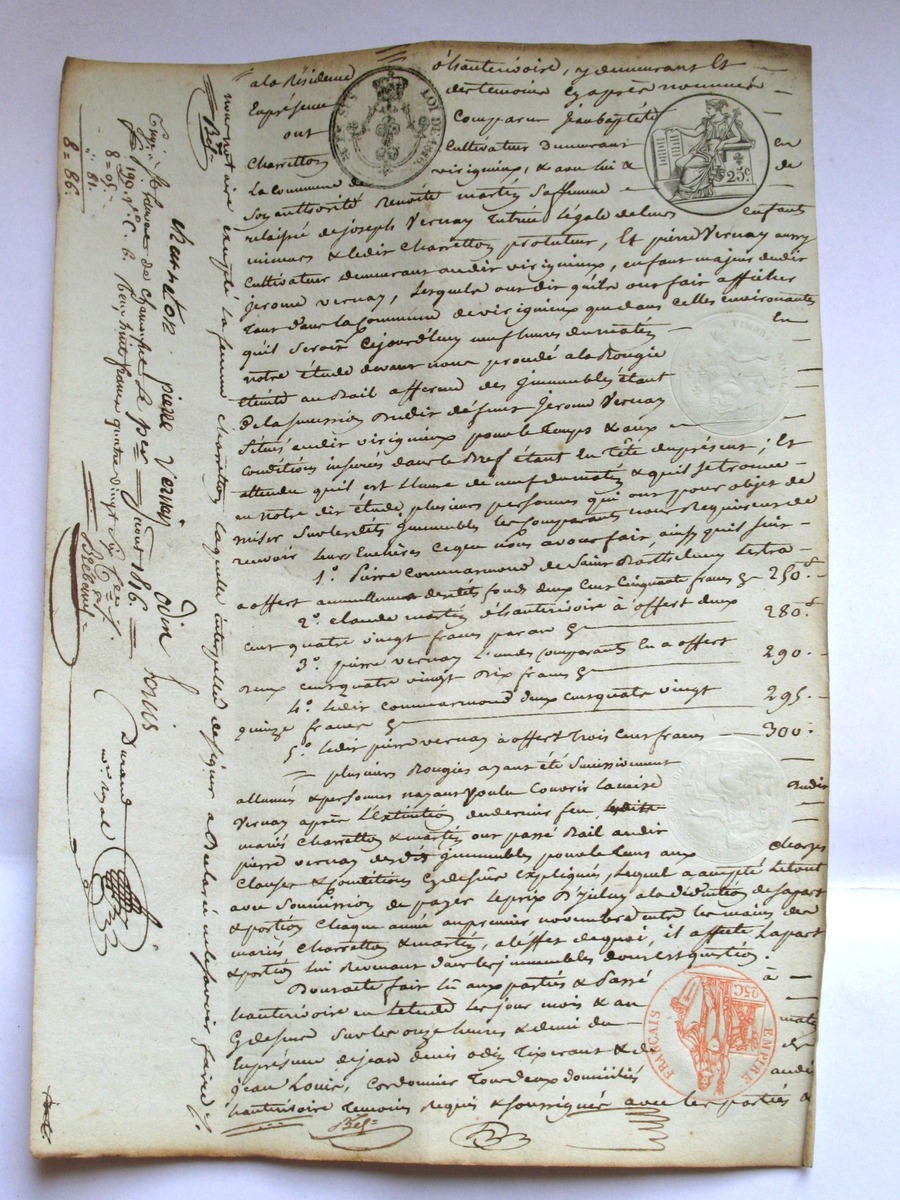 a la Résidence d'hauterivoire, y demeurant Et
En présence des temoins cy après nommés
ont Comparu Jean baptiste
Charretton Cultivateur demeurant en
La commune de virigneux, & sous lui & de
Son authorité Benoite martin Sa femme
relaissée de joseph Vernay Tutrice légale de leurs enfants
mineurs & ledit Charretton protuteur, Et pierre Vernay aussy
Cultivateur demeurant audit virigneux, enfant majeur dudit
Jerome Vernay, Lesquels ont dit qu'ils ont fait afficher
Tant dans la Commune de virigneux que dans celles environantes
qu'il Seroit Cejourd'huy neuf heures du matin En
notre étude devant nous procédé a la Bougie
éteinte au Bail afferme des immeubles étant
De la Succession dudit défunt Jerome Vernay
Situés audit virigneux pour le temps & aux
Conditions inserées dans le Bref étant En tête du présent ; Et
attendu qu'il est L'heure de neuf du matin & qu'il se trouve
en notre dite étude plusieurs personnes qui ont pour objet de
miser Sur lesdits immeubles les comparants nous Requierent de
recevoir leurs Encheres ce que nous avons fait, ainsy qu'il suit
1° Pierre Commarmond de Saint Barthelemy Lestra
a offert annuellement desdits fonds deux Cent Cinquante francs 250f
2° claude martin d'hauterivoire à offert deux
cent quatre vingt francs par an 280f
3° pierre vernay L'un des comparants En a offert
deux cent quatre vingt dix francs 290
4° ledit Commarmond deux cent quatre vingt
quinze francs 295
5° ledit pierre vernay à offert trois Cent francs 300
plusieurs Bougies ayant été Successivement
allumées & personne n'ayant Voulu Couvrir la mise dudit
Vernay après L'extinction du dernier feu, lesdits
mariés Charretton & martin ont passé Bail audit
pierre vernay desdits immeubles pour le temps aux charges
Clauses & Conditions cy dessus expliquées, Lequel a accepté le tout
avec Soumission de payer le prix D'iceluy a la déduction de sa part
& portion Chaque année au premier novembre entre les mains des
mariés Charretton & martin, a l'effet de quoi, il affecte la part
& portion lui Revenant dans les immeubles dont est question.
Dont acte fait lû aux parties & Passé à
hauterivoire en l'étude les jour mois & an
Cy dessus Sur les onze heures & demi du matin
En présence de jean denis odin Tixerant & de
Jean Louis, Cordonnier Tous deux domiciliés audit
hauterivoire temoins requis & Soussignés avec les parties &
nous notaire excepté la femme Charretton laquelle interpellée de signer a Declaré ne le savoir faire
charreton pierre vernay odin
Durand
n.re royal
8 = 86
LOI DE
25c
TIMBRE
EMPIRE FRANÇAIS
25C.